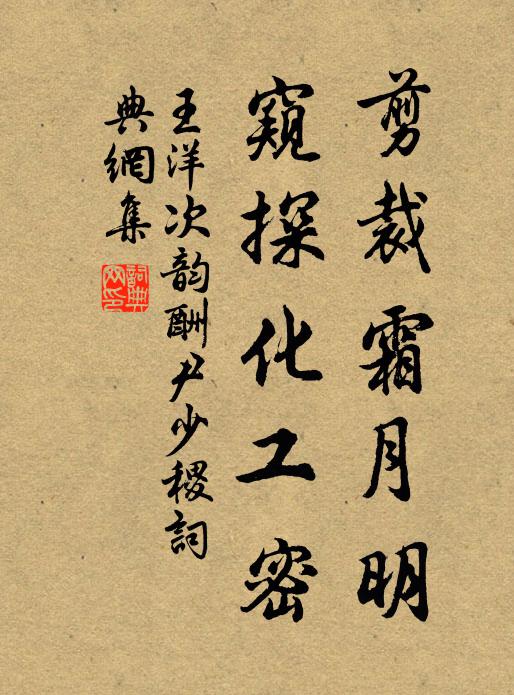 剪裁霜月明
窺探化工密
王洋次韵酬尹少稷詞
典網集
詞典網印